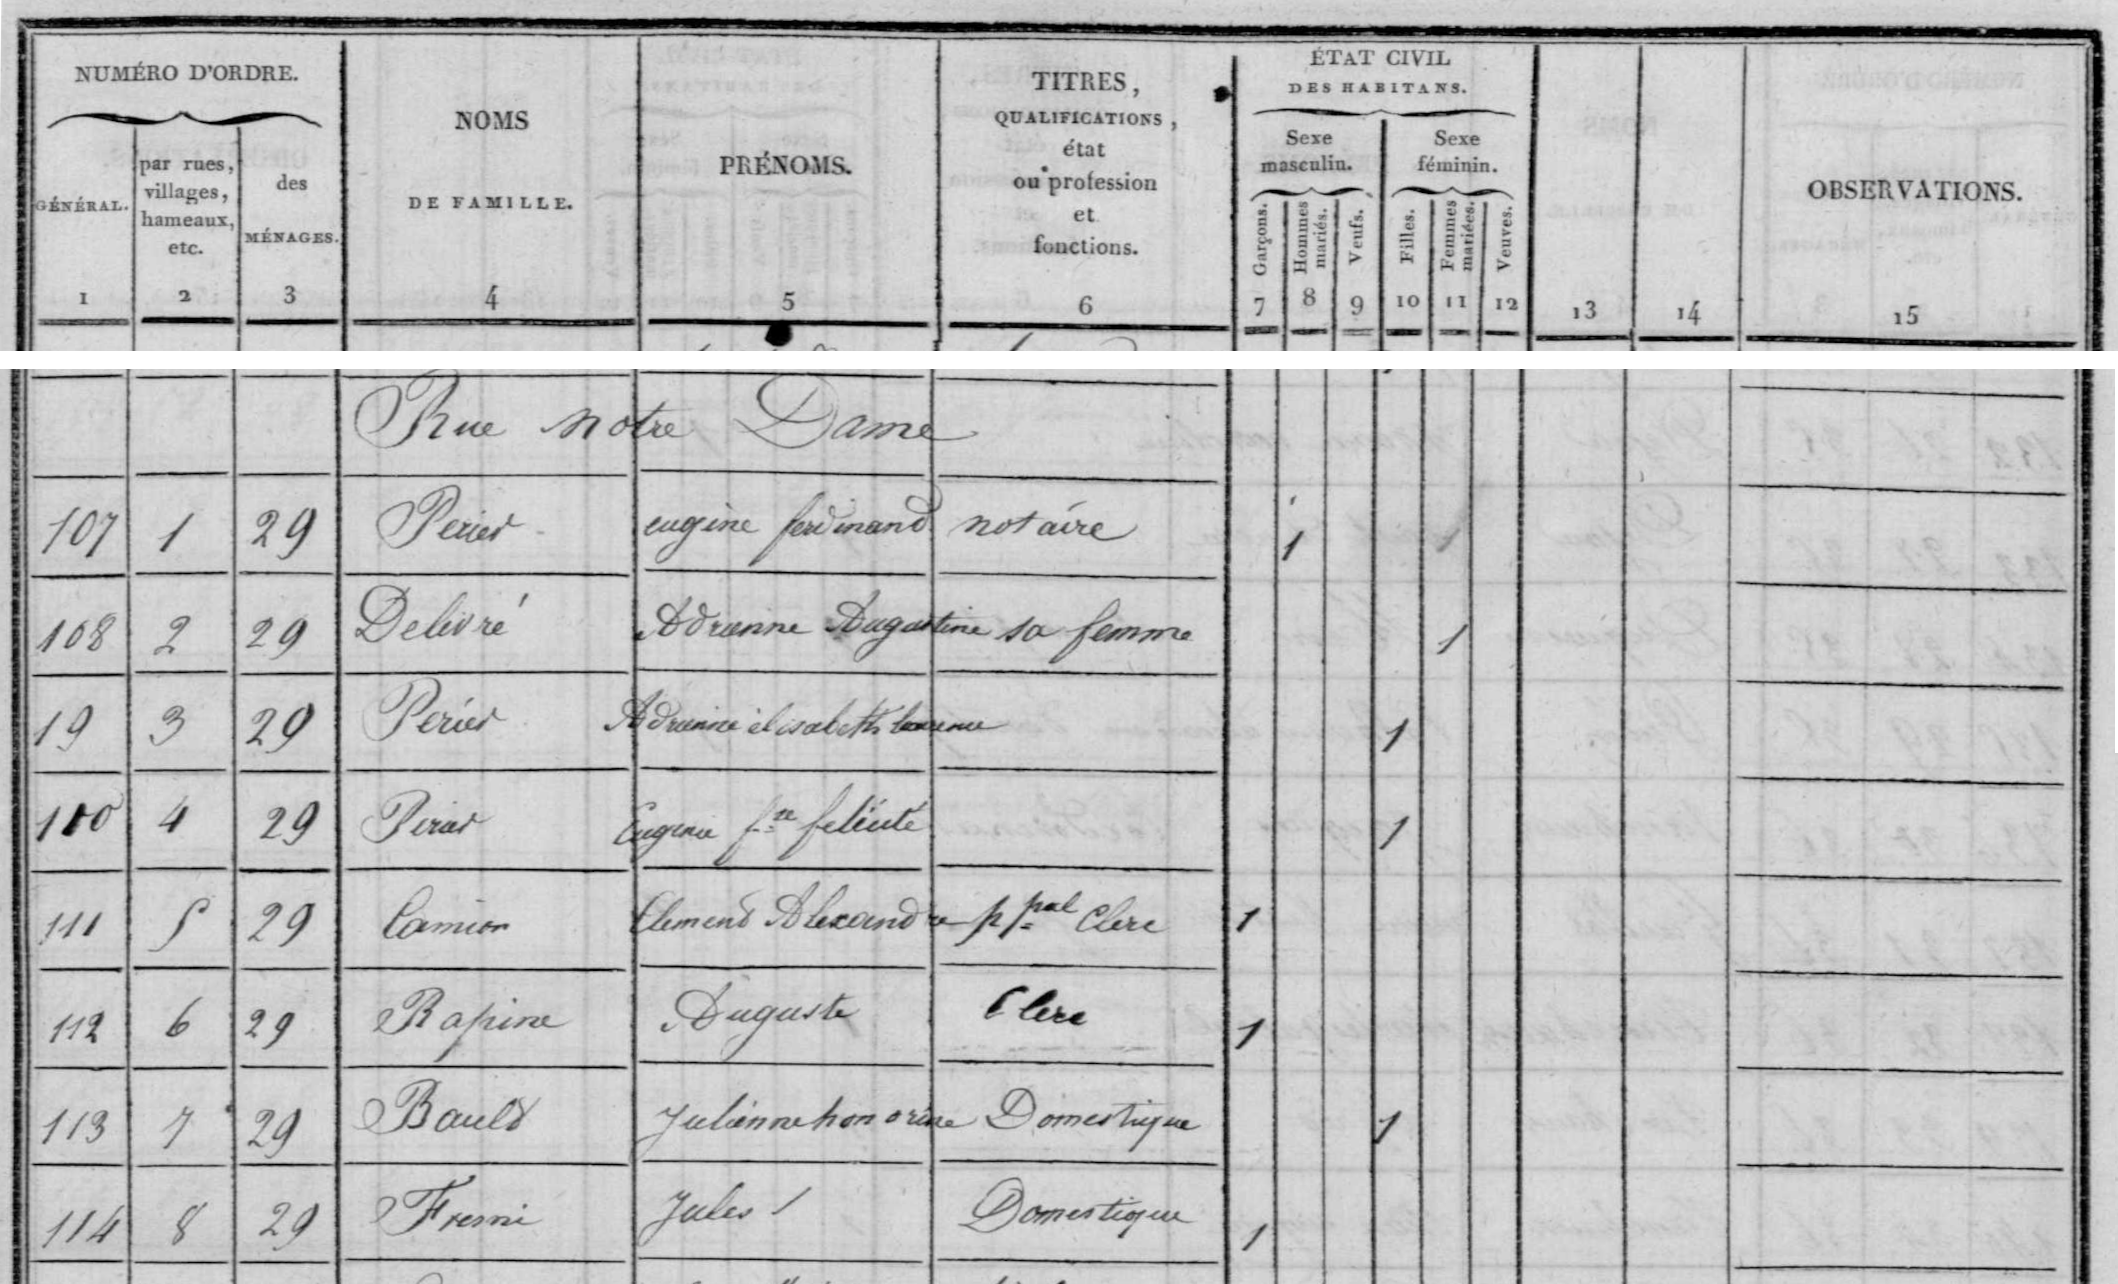 NUMÉRO D'ORDRE.
GÉNÉRAL.
par rues,
villages,
hameaux,
etc.
des
MÉNAGES.
NOMS
DE FAMILLE.
PRÉNOMS.
TITRES,
QUALIFICATIONS,
état
ou profession
et
fonctions.
ÉTAT CIVIL
DES HABITANS.
Sexe
masculin.
Sexe
féminin.
Garçons.
Hommes
mariés.
Veufs.
Filles.
Femmes
mariées.
Veuves.
OBSERVATIONS.
1 2 3 4 5 6 7 8 9 10 11 12 13 14 15
Rue Notre Dame
107 1 29 Perier eugène ferdinand notaire 1
108 2 29 Delivré Adrienne Augustine sa femme 1
19 3 29 Perier Adrienne élisabeth 1
110 4 29 Perier Eugenie fse félicité 1
111 5 29 Camion Clement Alexandre ppal Clerc 1
112 6 29 Rapine Auguste Clerc 1
113 7 29 Bauld Julienne honorine Domestique 1
114 8 29 Fresni Jules Domestique 1